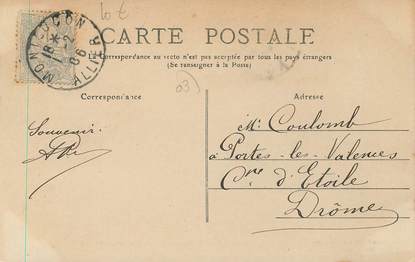 10 €
MONTLUÇON
18 * 2
06
ALLIER
CARTE POSTALE
La Correspondance au recto n'est pas acceptée par tous les pays étrangers
(Se renseigner à la Poste)
03)
Correspondance
Adresse
Souvenir.
Mr Coulomb
à Portes-les-Valences
Cne d'Etoile
Drôme